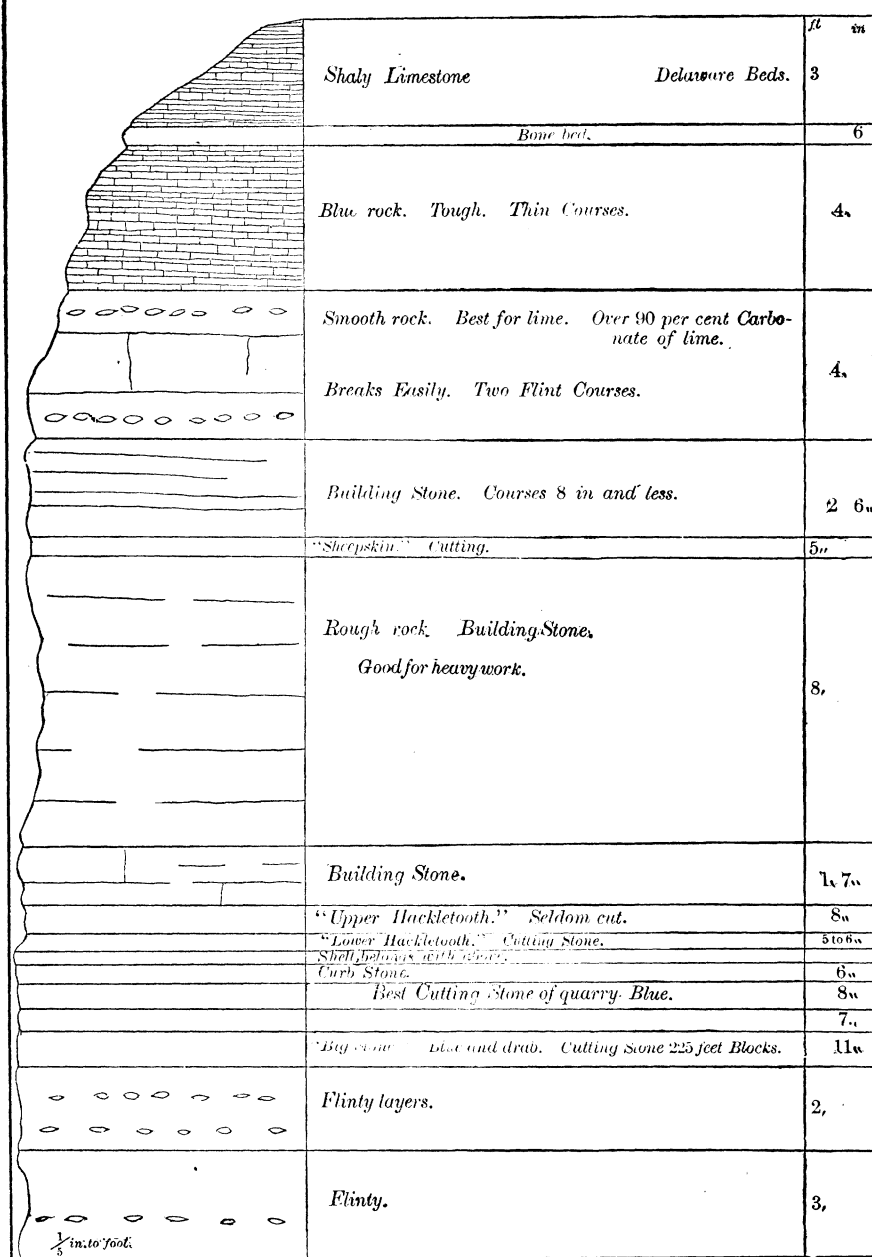 ft in
Shaly Limestone Delaware Beds. 3
Bone bed. 6
Blue rock. Tough. Thin Courses. 4,
Smooth rock. Best for lime. Over 90 per cent Carbo-
nate of lime.
4,
Breaks Easily. Two Flint Courses.
Building Stone. Courses 8 in and less. 2 6„
"Sheepskin." Cutting. 5„
Rough rock. Building Stone.
Good for heavy work.
8,
Building Stone. 1, 7„
"Upper Hackletooth." Seldom cut. 8„
"Lower Hackletooth." Cutting Stone. 5 to 6„
Shell, belongs with above.
Curb Stone. 6„
Best Cutting Stone of quarry. Blue. 8„
7„
"Big Blue and drab. Cutting Stone 225 feet Blocks. 11„
Flinty layers. 2,
Flinty. 3,
1/5 in. to foot.